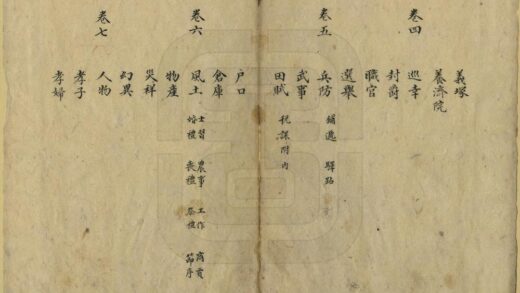 義塚
養濟院
卷四
巡幸
封爵
職官
選舉
卷五
兵防 鋪遞 驛路
武事
田賦 稅課附內
戶口
倉庫
卷六
風土 士習 農事 工作 商賈
婚禮 喪禮 祭禮 節序
物產
災祥
幻異
卷七
人物
孝子
孝婦